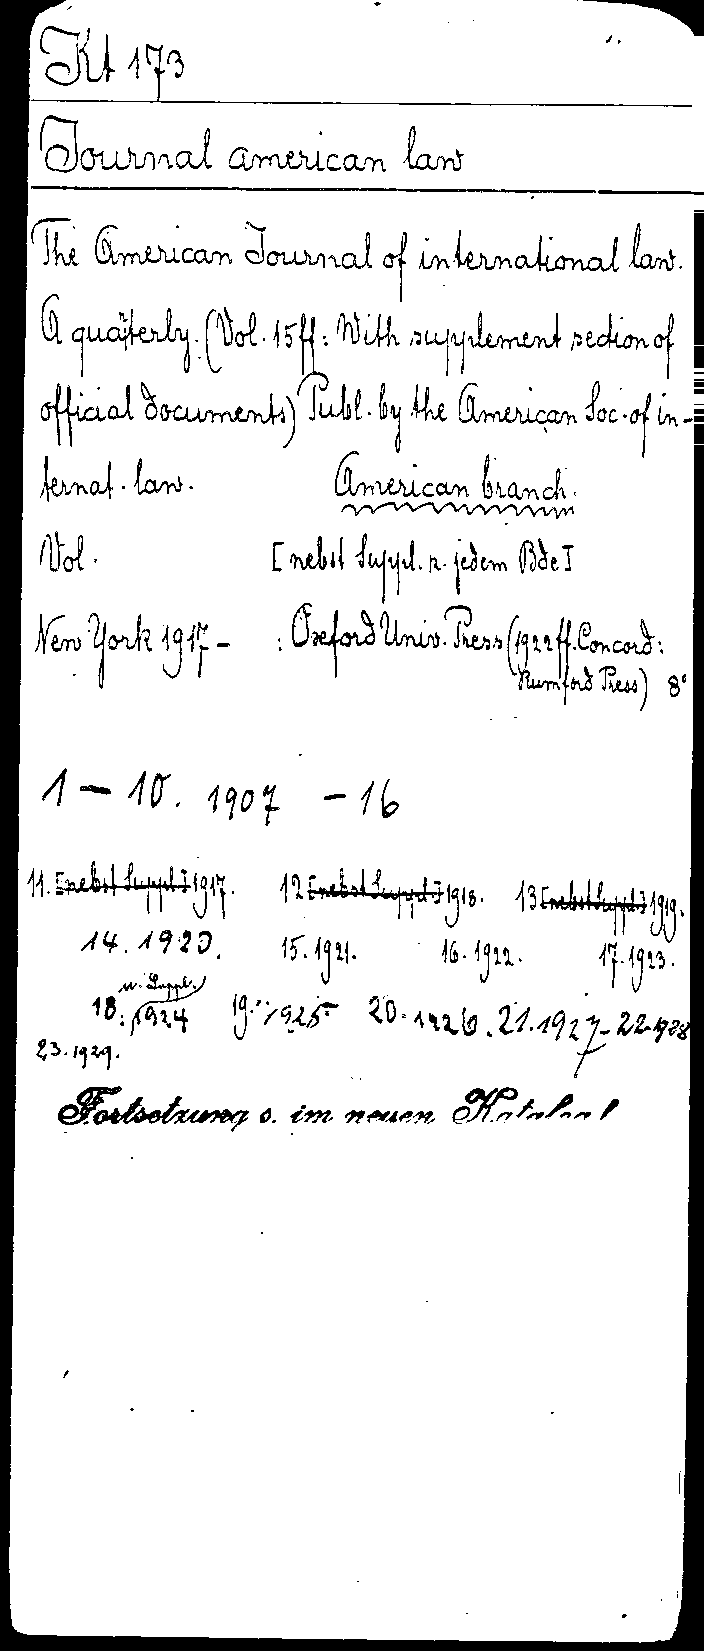 Kt 173
Journal american law
The American Journal of international law.
A quaterly. (Vol. 15ff: With supplement section of
official documents) Publ. by the American Soc. of in-
ternat. law. American branch.
Vol. [nebst Suppl. z. jedem Bde]
New York 1917- : Oxford Univ. Press (1922ff. Concord:
Rumford Press) 8°
1-10. 1907 -16
11. [nebst Suppl.] 1917. 12 [nebst Suppl.] 1918. 13 [nebst Suppl.] 1919.
14. 1920. 15. 1921. 16. 1922. 17. 1923.
u. Suppl.
18. 1924 19. 1925 20. 1926. 21. 1927- 22. 1928
23. 1929.
Fortsetzung s. im neuen Katalog!